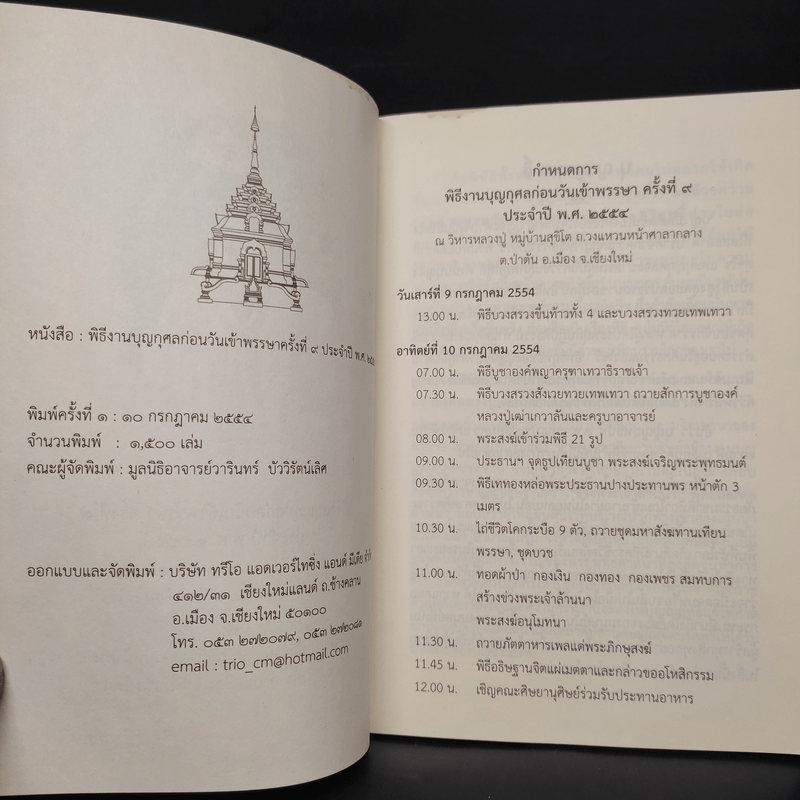 หนังสือ : พิธีงานบุญกุศลก่อนวันเข้าพรรษาครั้งที่ ๙ ประจำปี พ.ศ.
พิมพ์ครั้งที่ ๑ : ๑๐ กรกฎาคม ๒๕๕๔
จำนวนพิมพ์ : ๑,๕๐๐ เล่ม
คณะผู้จัดพิมพ์ : มูลนิธิอาจารย์วารินทร์ บัววิรัตน์เลิศ
ออกแบบและจัดพิมพ์ : บริษัท ทรีโอ แอดเวอร์ไทซิ่ง แอนด์ มีเดีย
๔๑๒/๓๑ เชียงใหม่แลนด์ ถ.ช้างคลาน
อ.เมือง จ.เชียงใหม่ ๕๐๑๐๐
โทร. ๐๕๓ ๒๗๒๐๗๙, ๐๕๓ ๒๗๒๐๘๑
email : trio_cm@hotmail.com
กำหนดการ
พิธีงานบุญกุศลก่อนวันเข้าพรรษา ครั้งที่ ๙
ประจำปี พ.ศ. ๒๕๕๔
ณ วิหารหลวงปู่ หมู่บ้านสุขิโต ถ.วงแหวนหน้าศาลากลาง
ต.ป่าตัน อ.เมือง จ.เชียงใหม่
วันเสาร์ที่ 9 กรกฎาคม 2554
13.00 น. พิธีบวงสรวงขึ้นท้าวทั้ง 4 และบวงสรวงทวยเทพเทวา
อาทิตย์ที่ 10 กรกฎาคม 2554
07.00 น. พิธีบูชาองค์พญาครุฑาเทวาธิราชเจ้า
07.30 น. พิธีบวงสรวงสังเวยทวยเทพเทวา ถวายสักการบูชาองค์
หลวงปู่เฒ่าเกวาลันและครูบาอาจารย์
08.00 น. พระสงฆ์เข้าร่วมพิธี 21 รูป
09.00 น. ประธานฯ จุดธูปเทียนบูชา พระสงฆ์เจริญพระพุทธมนต์
09.30 น. พิธีเททองหล่อพระประธานปางประทานพร หน้าตัก 3
เมตร
10.30 น. ไถ่ชีวิตโคกระบือ 9 ตัว, ถวายชุดมหาสังฆทานเทียน
พรรษา, ชุดบวช
11.00 น. ทอดผ้าป่า กองเงิน กองทอง กองเพชร สมทบการ
สร้างข่วงพระเจ้าล้านนา
พระสงฆ์อนุโมทนา
11.30 น. ถวายภัตตาหารเพลแด่พระภิกษุสงฆ์
11.45 น. พิธีอธิษฐานจิตแผ่เมตตาและกล่าวขออโหสิกรรม
12.00 น. เชิญคณะศิษยานุศิษย์ร่วมรับประทานอาหาร